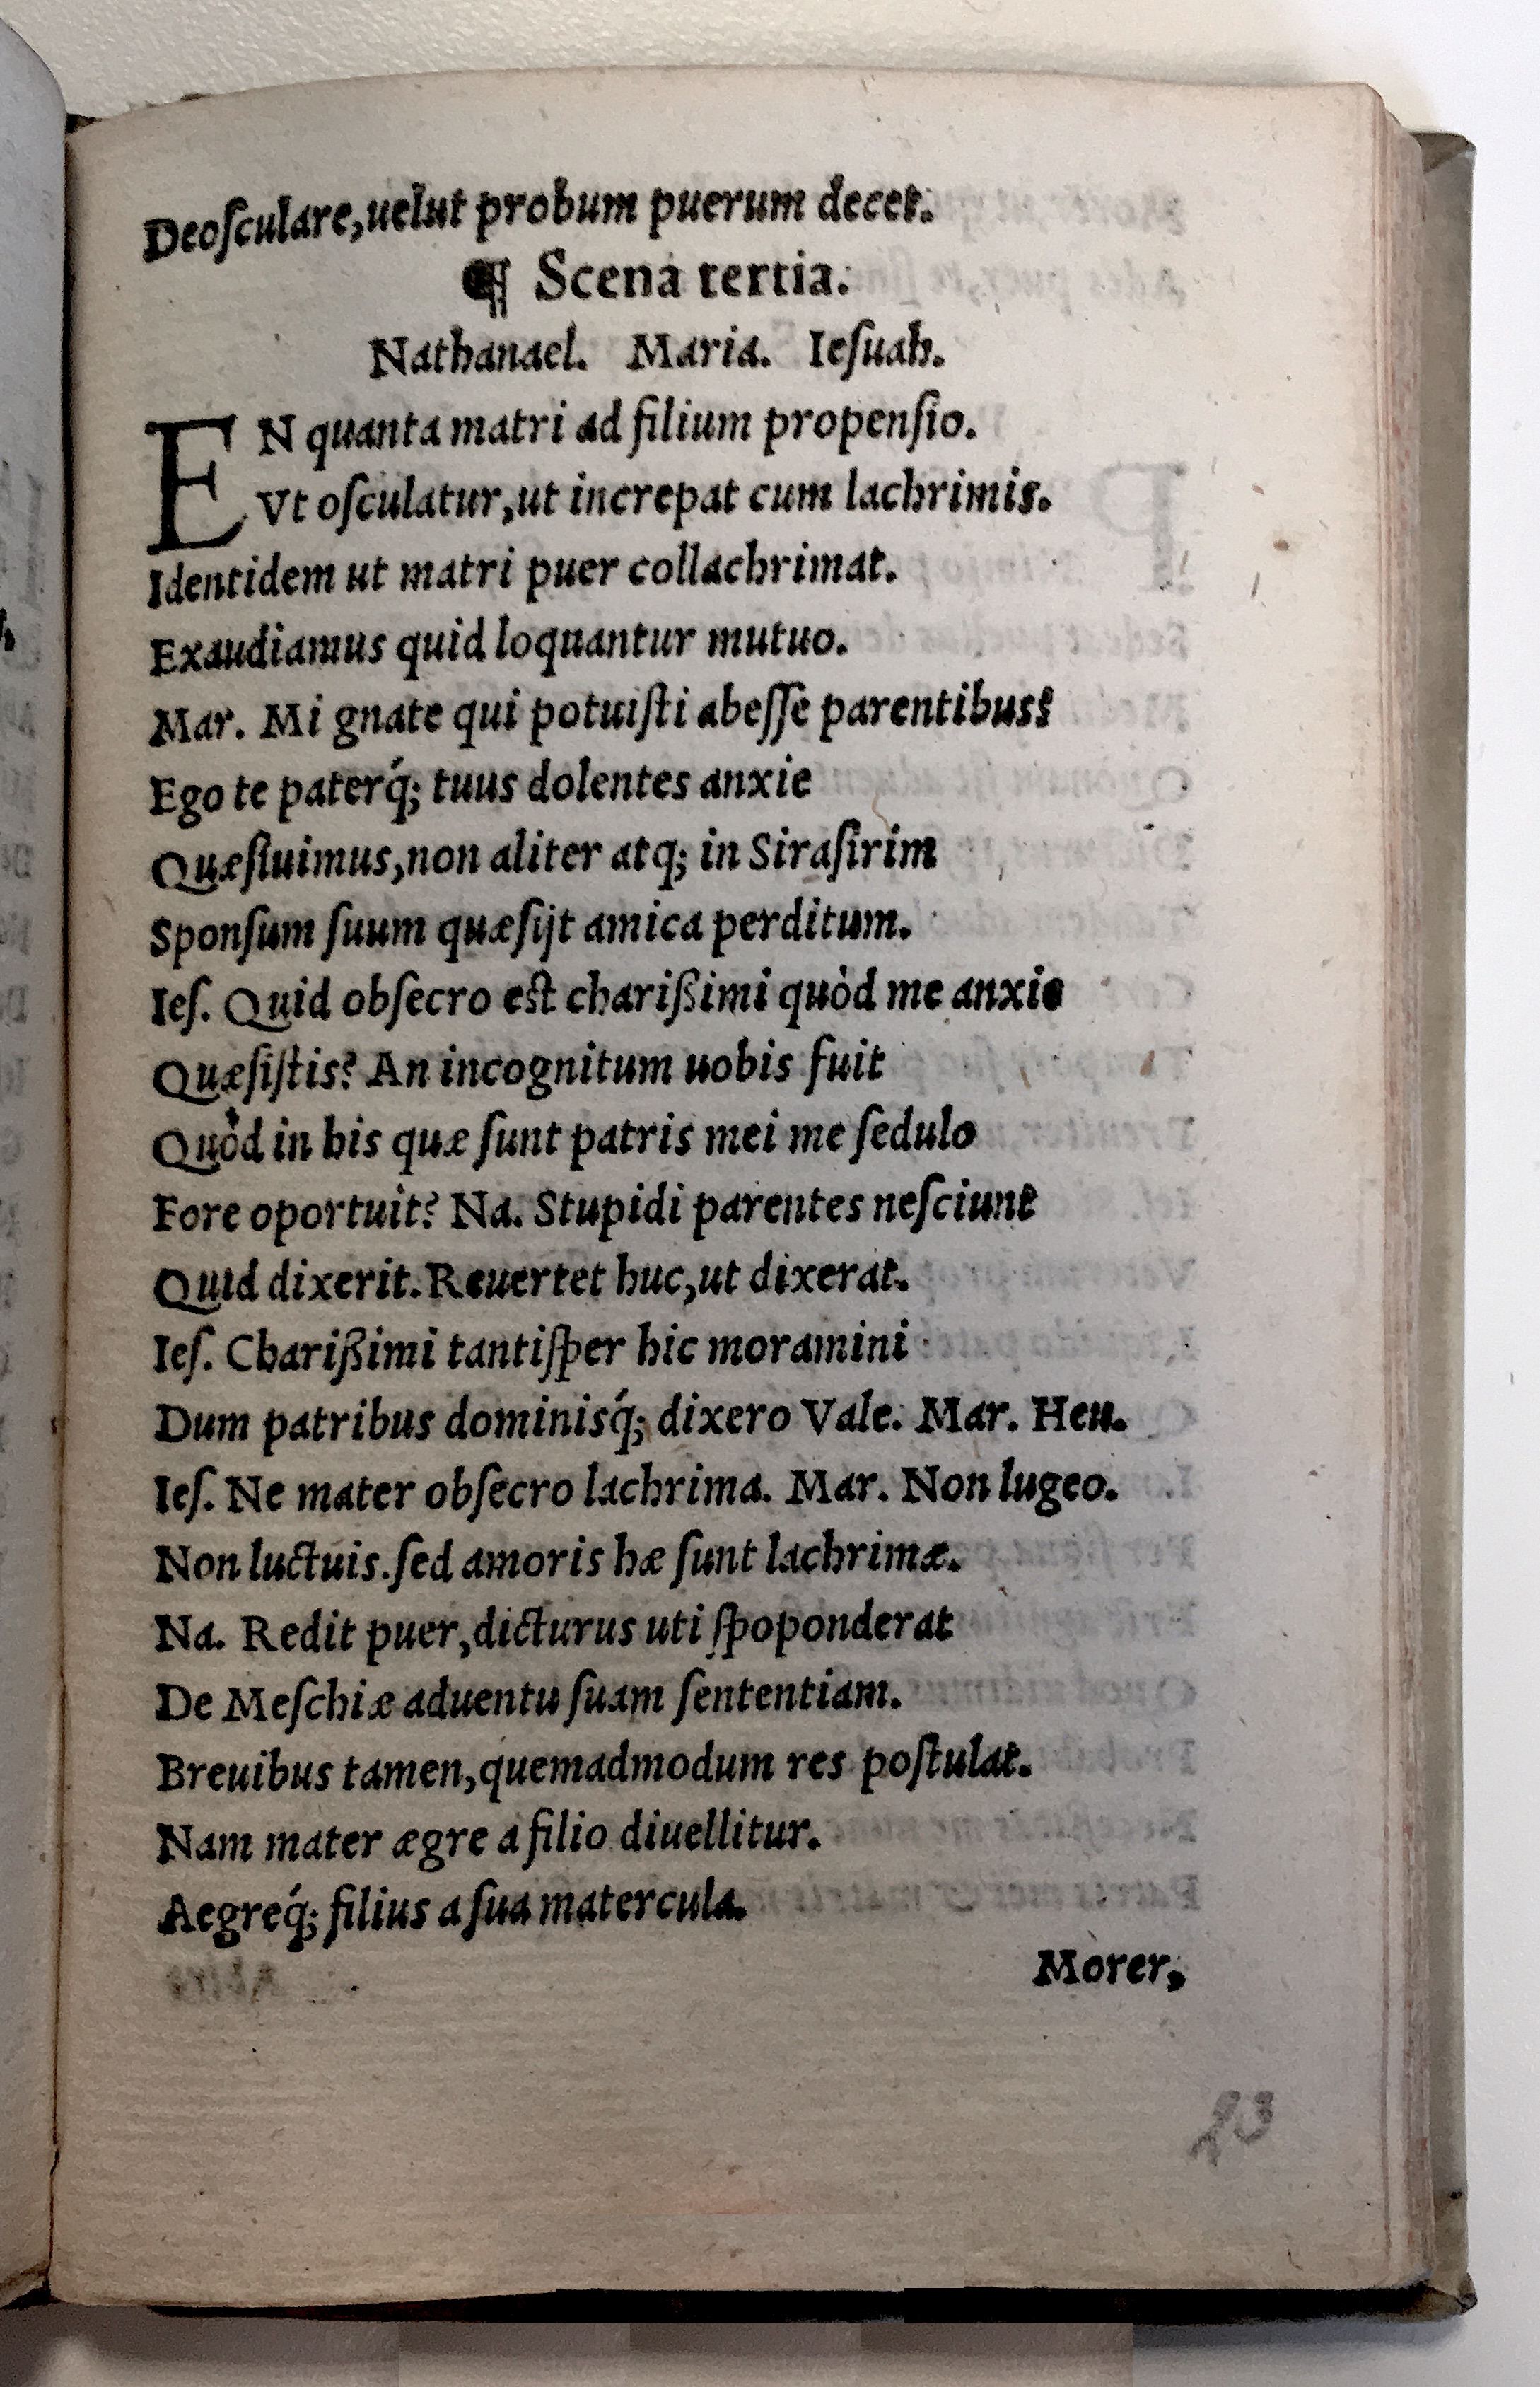 Deoſculare,uelut probum puerum decet.
¶ Scena tertia.
Nathanael. Maria. Ieſuah.
EN quanta matri ad filium propenſio.
Vt oſculatur,ut increpat cum lachrimis.
Identidem ut matri puer collachrimat.
Exaudiamus quid loquantur mutuo.
Mar. Mi gnate qui potuiſti abeſſe parentibus?
Ego te paterq́; tuus dolentes anxie
Quæſiuimus,non aliter atq; in Siraſirim
Sponſum ſuum quæſijt amica perditum.
Ieſ. Quid obſecro eſt charißimi quòd me anxie
Quæſiſtis? An incognitum uobis fuit
Quòd in his quæ ſunt patris mei me ſedulo
Fore oportuit? Na. Stupidi parentes neſciunt
Quid dixerit. Reuertet huc,ut dixerat.
Ieſ. Charißimi tantiſper hic moramini
Dum patribus dominisq́; dixero Vale. Mar. Heu.
Ieſ. Ne mater obſecro lachrima. Mar. Non lugeo.
Non luctuis.ſed amoris hæ ſunt lachrimæ.
Na. Redit puer,dicturus uti ſpoponderat
De Meſchiæ aduentu ſuam ſententiam.
Breuibus tamen,quemadmodum res poſtulat.
Nam mater ægre a filio diuellitur.
Aegreq́; filius a ſua matercula.
Morer,